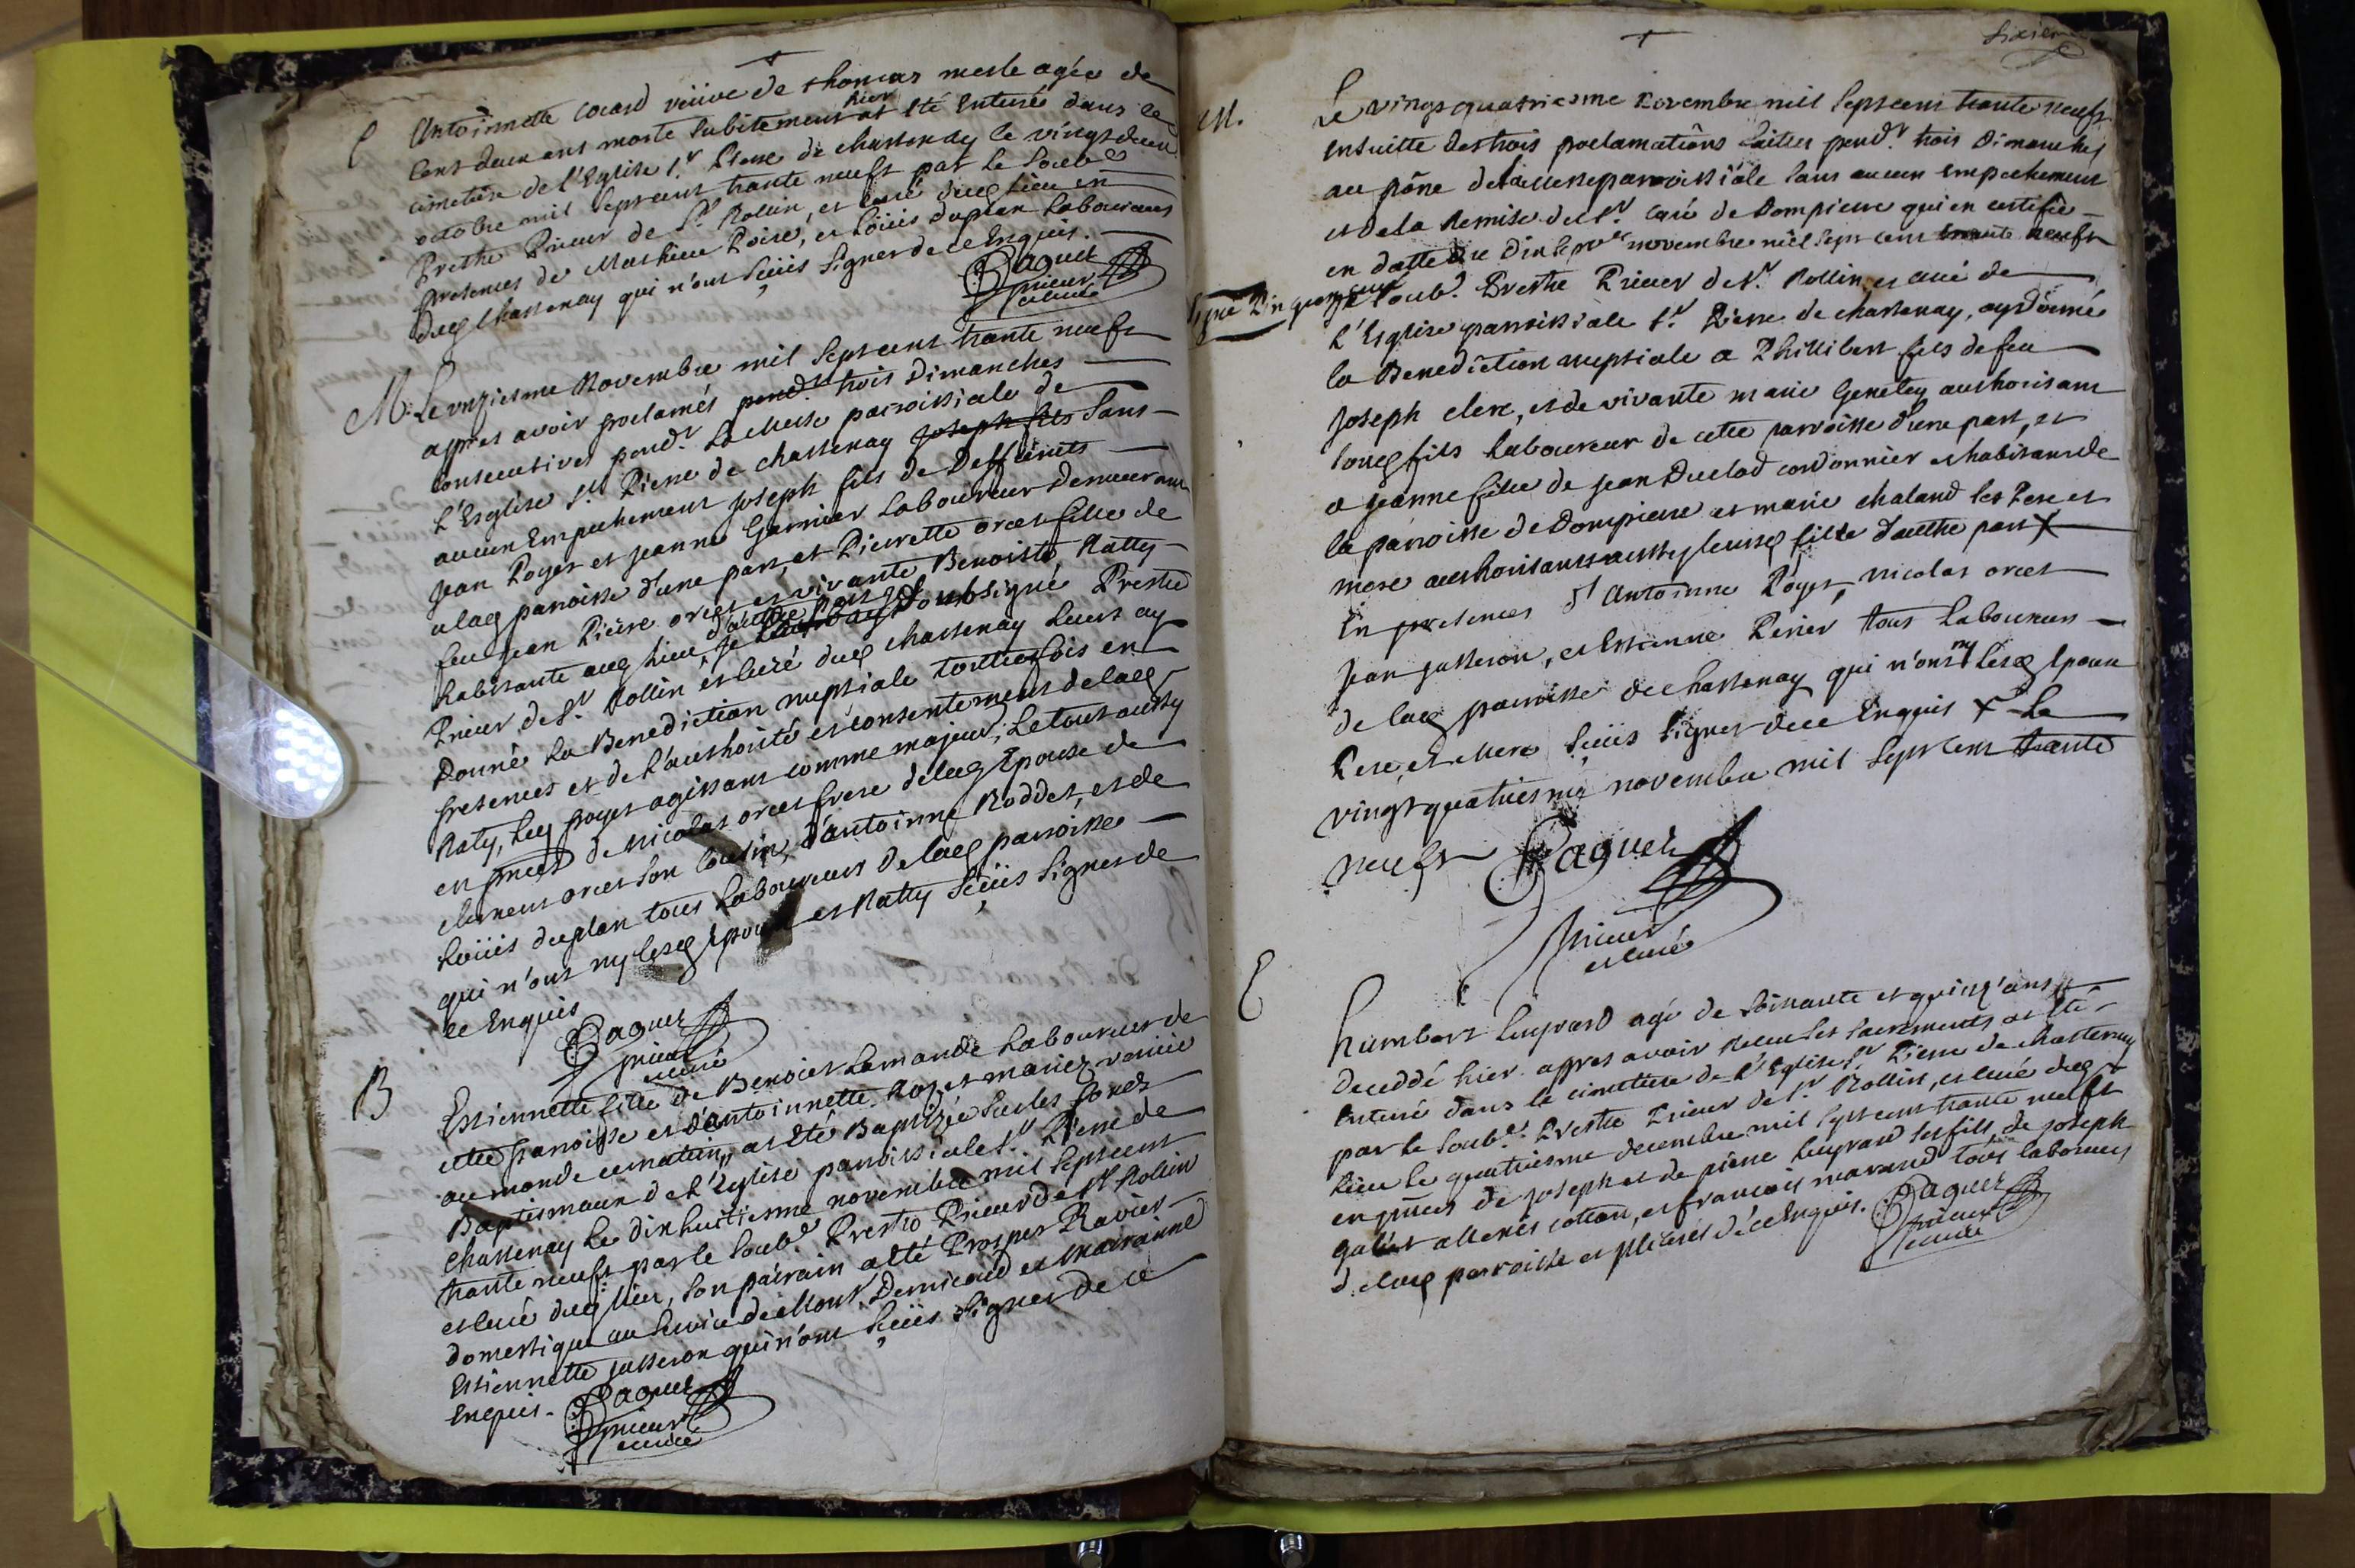 E Antoinnette cocard veüve de thomas merle agée de
cent deux ans morte subitement hier at été Enterrée dans le
cimetiere de l'Eglise St. Pierre de chassenay le vingt deux
octobre mil sept cent trante neufs par le soubé
Prestre Prieur de St. Rollin, et curé dud lieu en
presences de Mathieu Poire, et Loüis duplan Laboureurs
dud chassenay qui n'ont sçeüs signer de ce Enquis.
Paguez
prieur
et curé
M. Le onziesme Novembre mil sept cent trante neufs
apres avoir proclamés pendt. trois Dimanches
consecutives pendt. La Messe parroissiale de
L'Esglise St. Pierre de chassenay Joseph fils sans
aucun Empechement Joseph fils de Deffunts
Jean Poyet et Jeanne Garnier Laboureur Demeurant
alad parroisse d'une part, et Pierrette orcet fille de
feu Jean Pierre orcet et vivante Benoiste Ratty
habitante aud lieu, d'autre part je soubsigné Prestre
Prieur de St. Rollin et curé dud chassenay Leurs ay
Donné La Benediction nuptiale touttesfois en
presences et de l'authorité et consentement de lad
Raty, Led poyet agissant comme majeur, Le tout aussy
en pnces de Nicolas orcet frere de lad Epouse de
clement orcet son cousin, d'antoinne Roddet, et de
Loüis duplan tous Laboureurs de lad parroisse
qui n'ont ny lesd Epoux et Ratty sçeüs signer de
ce Enquis
Paguez
prieur
et curé
B Estiennette fille de Benoict Lamande Laboureur de
cette parroisse et d'antoinnette Roy et mariez venüe
au monde ce matin, at Eté Baptizée sur les fonds
Baptismaux de l'Eglise parroissiale St. Pierre de
chassenay Le dixhuitiesme novembre mil sept cent
trante neufs par le soubé Prestre Prieur de St Rollin
et curé dud lieu, son pairain a Eté Prosper Ravier
domestique au service de Monsr. Demicaud et Mairainne
Estiennette Jusseron qui n'ont sçeüs signer de ce
Enquis.
Paguez
prieur
et curé
Sixieme
M. Le vingt quatriesme Novembre mil sept cent trante neufs
ensuitte des trois proclamations faittes pendt. trois Dimanches
au prône de la Messe parroissiale sans aucun Empechement
et de la Remise de Sr. curé de Dompierre qui en certifie
en datte du novembre mil sept cent trante neufs
signé je soubé. Prestre Prieur de St. Rollin et curé de
L'Esglise parroissiale St. Pierre de chassenay, ay donné
la Benediction nuptiale a Phillibert fils de feu
Joseph clerc, et de vivante marie Genetey authorisant
sond fils Laboureur de cette parroisse d'une part, et
a Jeanne fille de Jean Duclod cordonnier et habitant de
la parroisse de Dompierre et marie chaland les Pere et
mere authorisants aussy leursd fille d'autre part X
En presences d'Antoinne Poyet, nicolas orcet
Jean Jusseron, et Estienne Perier tous Laboureurs
de lad parroisse de chassenay qui n'ont ny Lesd Epoux
Pere, et Mere sçeüs signer de ce Enquis X Le
vingt quatriesme novembre mil sept cent trante
neufs Paguez
prieur
et curé
E humbert agé de soixante et quinz'ans
deceddé hier apres avoir Receu les sacrements at Eté
Enterré dans le cimetiere de l'Eglise St. Pierre de chassenay
par le soubé. Prestre Prieur de St. Rollin, et curé dud
Lieu le quatriesme decembre mil sept cent trante neufs
en pnces de Joseph et de pierre ses fils, de joseph
cottan, et francois marand tous laboureurs
de lad parroisse et de ce Enquis.
Paguez
prieur
et curé